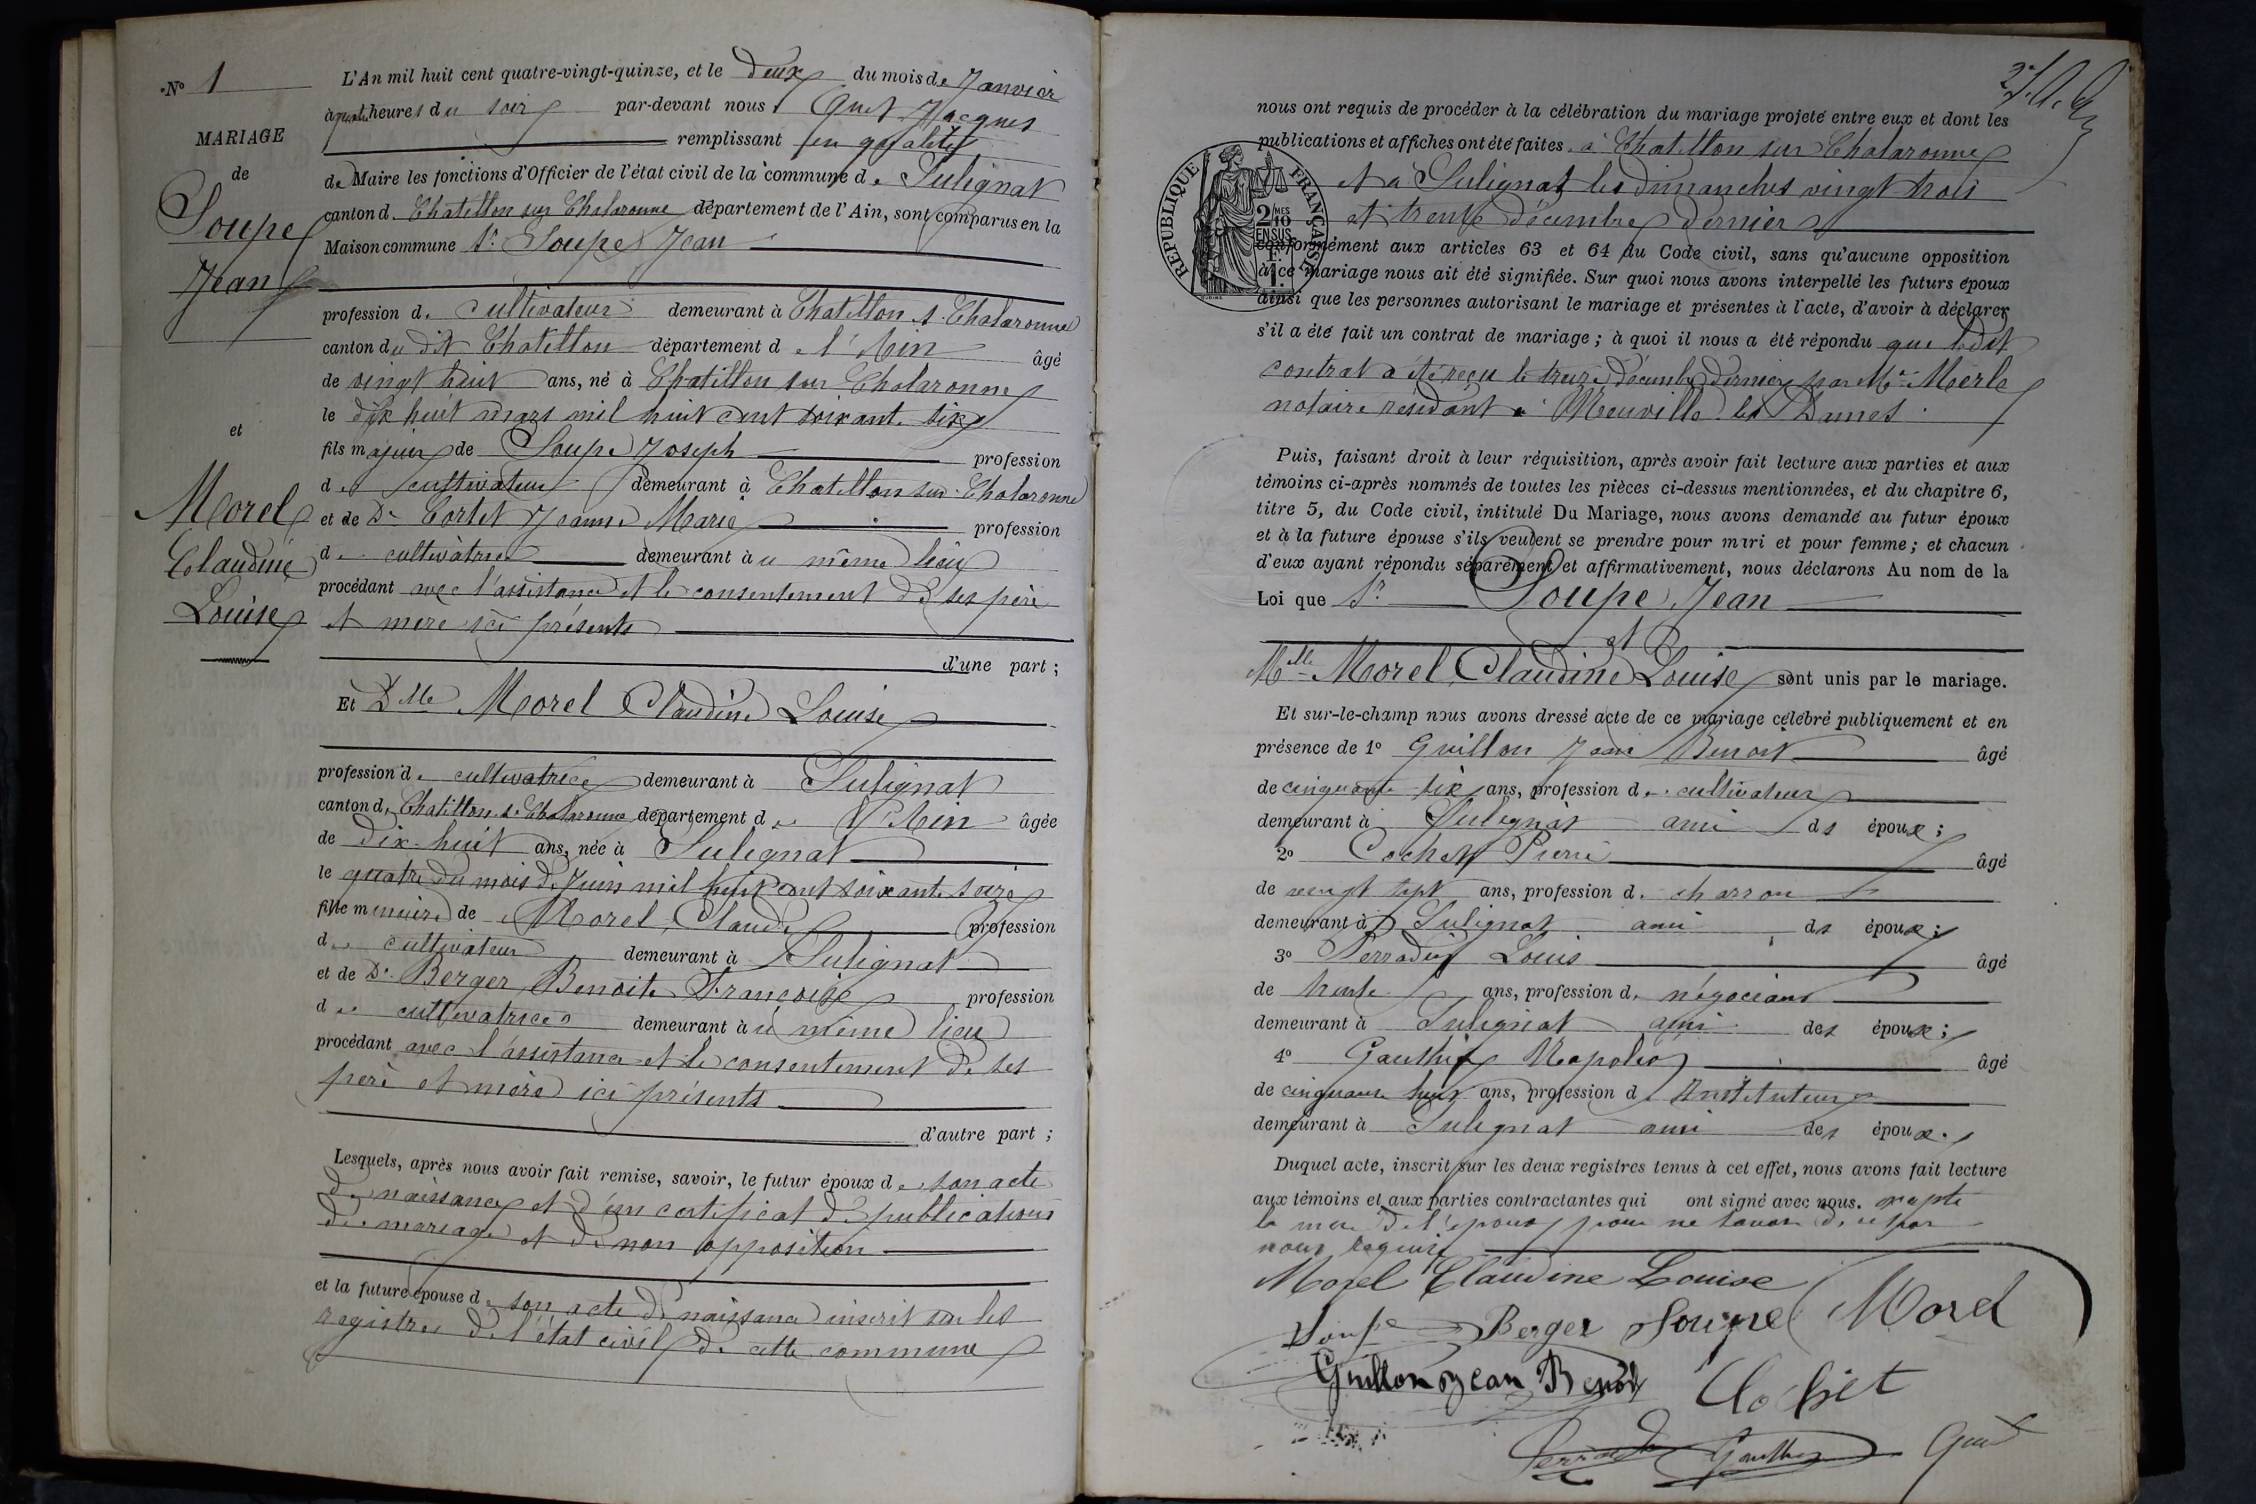 N° 1
MARIAGE
de
Soupe
Jean
et
Morel
Claudine
Louise
L'An mil huit cent quatre-vingt-quinze, et le deux du mois de Janvier
à quatre heures du soir par-devant nous Quet Jacques
remplissant en qualité
de Maire les fonctions d'Officier de l'état civil de la commune de Sulignat
canton d. Chatillon sur Chalaronne département de l'Ain, sont comparus en la
Maison commune Sr. Soupe Jean
profession de cultivateur demeurant à Chatillon s. Chalaronne
canton du dit Chatillon département de l'Ain âgé
de vingt huit ans, né à Chatillon sur Chalaronne
le dix huit mars mil huit cent soixante six
fils majeur de Soupe Joseph profession
de cultivateur demeurant à Chatillon sur Chalaronne
et de De Cortet Jeanne Marie profession
de cultivatrice demeurant au même lieu
procédant avec l'assistance et le consentement de ses père
et mère ici présents
d'une part ;
Et Dlle Morel Claudine Louise
profession de cultivatrice demeurant à Sulignat
canton de Chatillon s. Chalaronne département de l'Ain âgée
de dix-huit ans, née à Sulignat
le quatre du mois de Juin mil huit cent soixante seize
fille mineure de Morel Claude profession
de cultivateur demeurant à Sulignat
et de De Berger Benoite Françoise profession
de cultivatrice demeurant au même lieu
procédant avec l'assistance et le consentement de ses
père et mère ici présents
d'autre part ;
Lesquels, après nous avoir fait remise, savoir, le futur époux de son acte
de naissance et d'un certificat de publications
de mariage et de non opposition
et la future épouse de son acte de naissance inscrit sur les
registres de l'état civil de cette commune
nous ont requis de procéder à la célébration du mariage projeté entre eux et dont les
publications et affiches ont été faites à Chatillon sur Chalaronne
et à Sulignat les dimanches vingt trois
et trente décembre dernier
conformément aux articles 63 et 64 du Code civil, sans qu'aucune opposition
à ce mariage nous ait été signifiée. Sur quoi nous avons interpellé les futurs époux
ainsi que les personnes autorisant le mariage et présentes à l'acte, d'avoir à déclarer
s'il a été fait un contrat de mariage ; à quoi il nous a été répondu que ledit
contrat a été reçu le treize décembre dernier par Me Merle
notaire résidant à Neuville les Dames.
RÉPUBLIQUE FRANÇAISE
2/10 MES
EN SUS
F.
1.
Puis, faisant droit à leur réquisition, après avoir fait lecture aux parties et aux
témoins ci-après nommés de toutes les pièces ci-dessus mentionnées, et du chapitre 6,
titre 5, du Code civil, intitulé Du Mariage, nous avons demandé au futur époux
et à la future épouse s'ils veulent se prendre pour mari et pour femme ; et chacun
d'eux ayant répondu séparément et affirmativement, nous déclarons Au nom de la
Loi que Sr. Soupe Jean
et
Mlle Morel Claudine Louise sont unis par le mariage.
Et sur-le-champ nous avons dressé acte de ce mariage célébré publiquement et en
présence de 1° Guillon Jean Benoit âgé
de cinquante six ans, profession de cultivateur
demeurant à Sulignat ami des époux ;
2° Cochet Pierre âgé
de vingt sept ans, profession de charron
demeurant à Sulignat ami des époux ;
3° Perradin Louis âgé
de trente ans, profession de négociant
demeurant à Sulignat ami des époux ;
4° Gauthier Napoléon âgé
de cinquante huit ans, profession d'Instituteur
demeurant à Sulignat ami des époux.
Duquel acte, inscrit sur les deux registres tenus à cet effet, nous avons fait lecture
aux témoins et aux parties contractantes qui ont signé avec nous. excepté
la mère de l'époux pour ne savoir de ce par
nous requise
Morel Claudine Louise
Soupe Berger Soupe Morel
Guillon Jean Benoit Cochet
Perradin Gauthier Quet